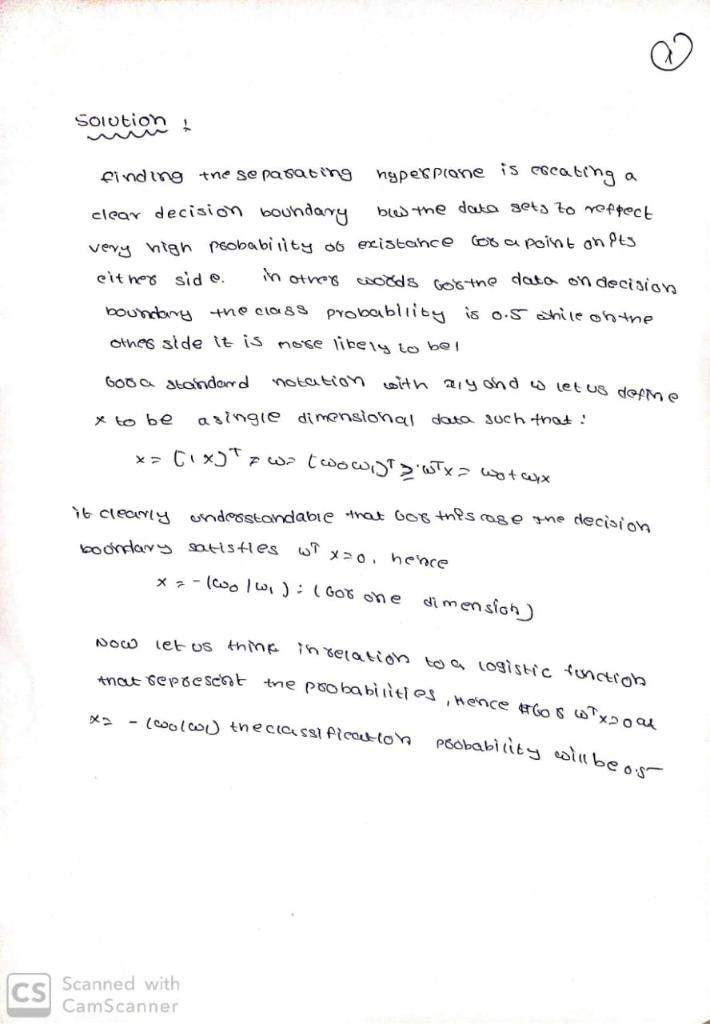 Solution :
finding the separating hyperplane is creating a
clear decision boundary b/w the data sets to reffect
very high probability of existance for a point on its
either side. in other words for the data on decision
boundary the class probability is 0.5 while on the
other side it is more likely to be 1
for a standard notation with x,y and w let us define
x to be a single dimensional data such that :
x = [1 x]T w = [w0 w1]T wTx = w0 + w1x
it clearly understandable that for this case the decision
boundary satisfies wT x=0, hence
x = -(w0/w1) : (for one dimension)
Now let us think in relation to a logistic function
that represent the probabilities, Hence for wTx=0 at
x= -(w0/w1) the classification probability will be 0.5
CS Scanned with
CamScanner